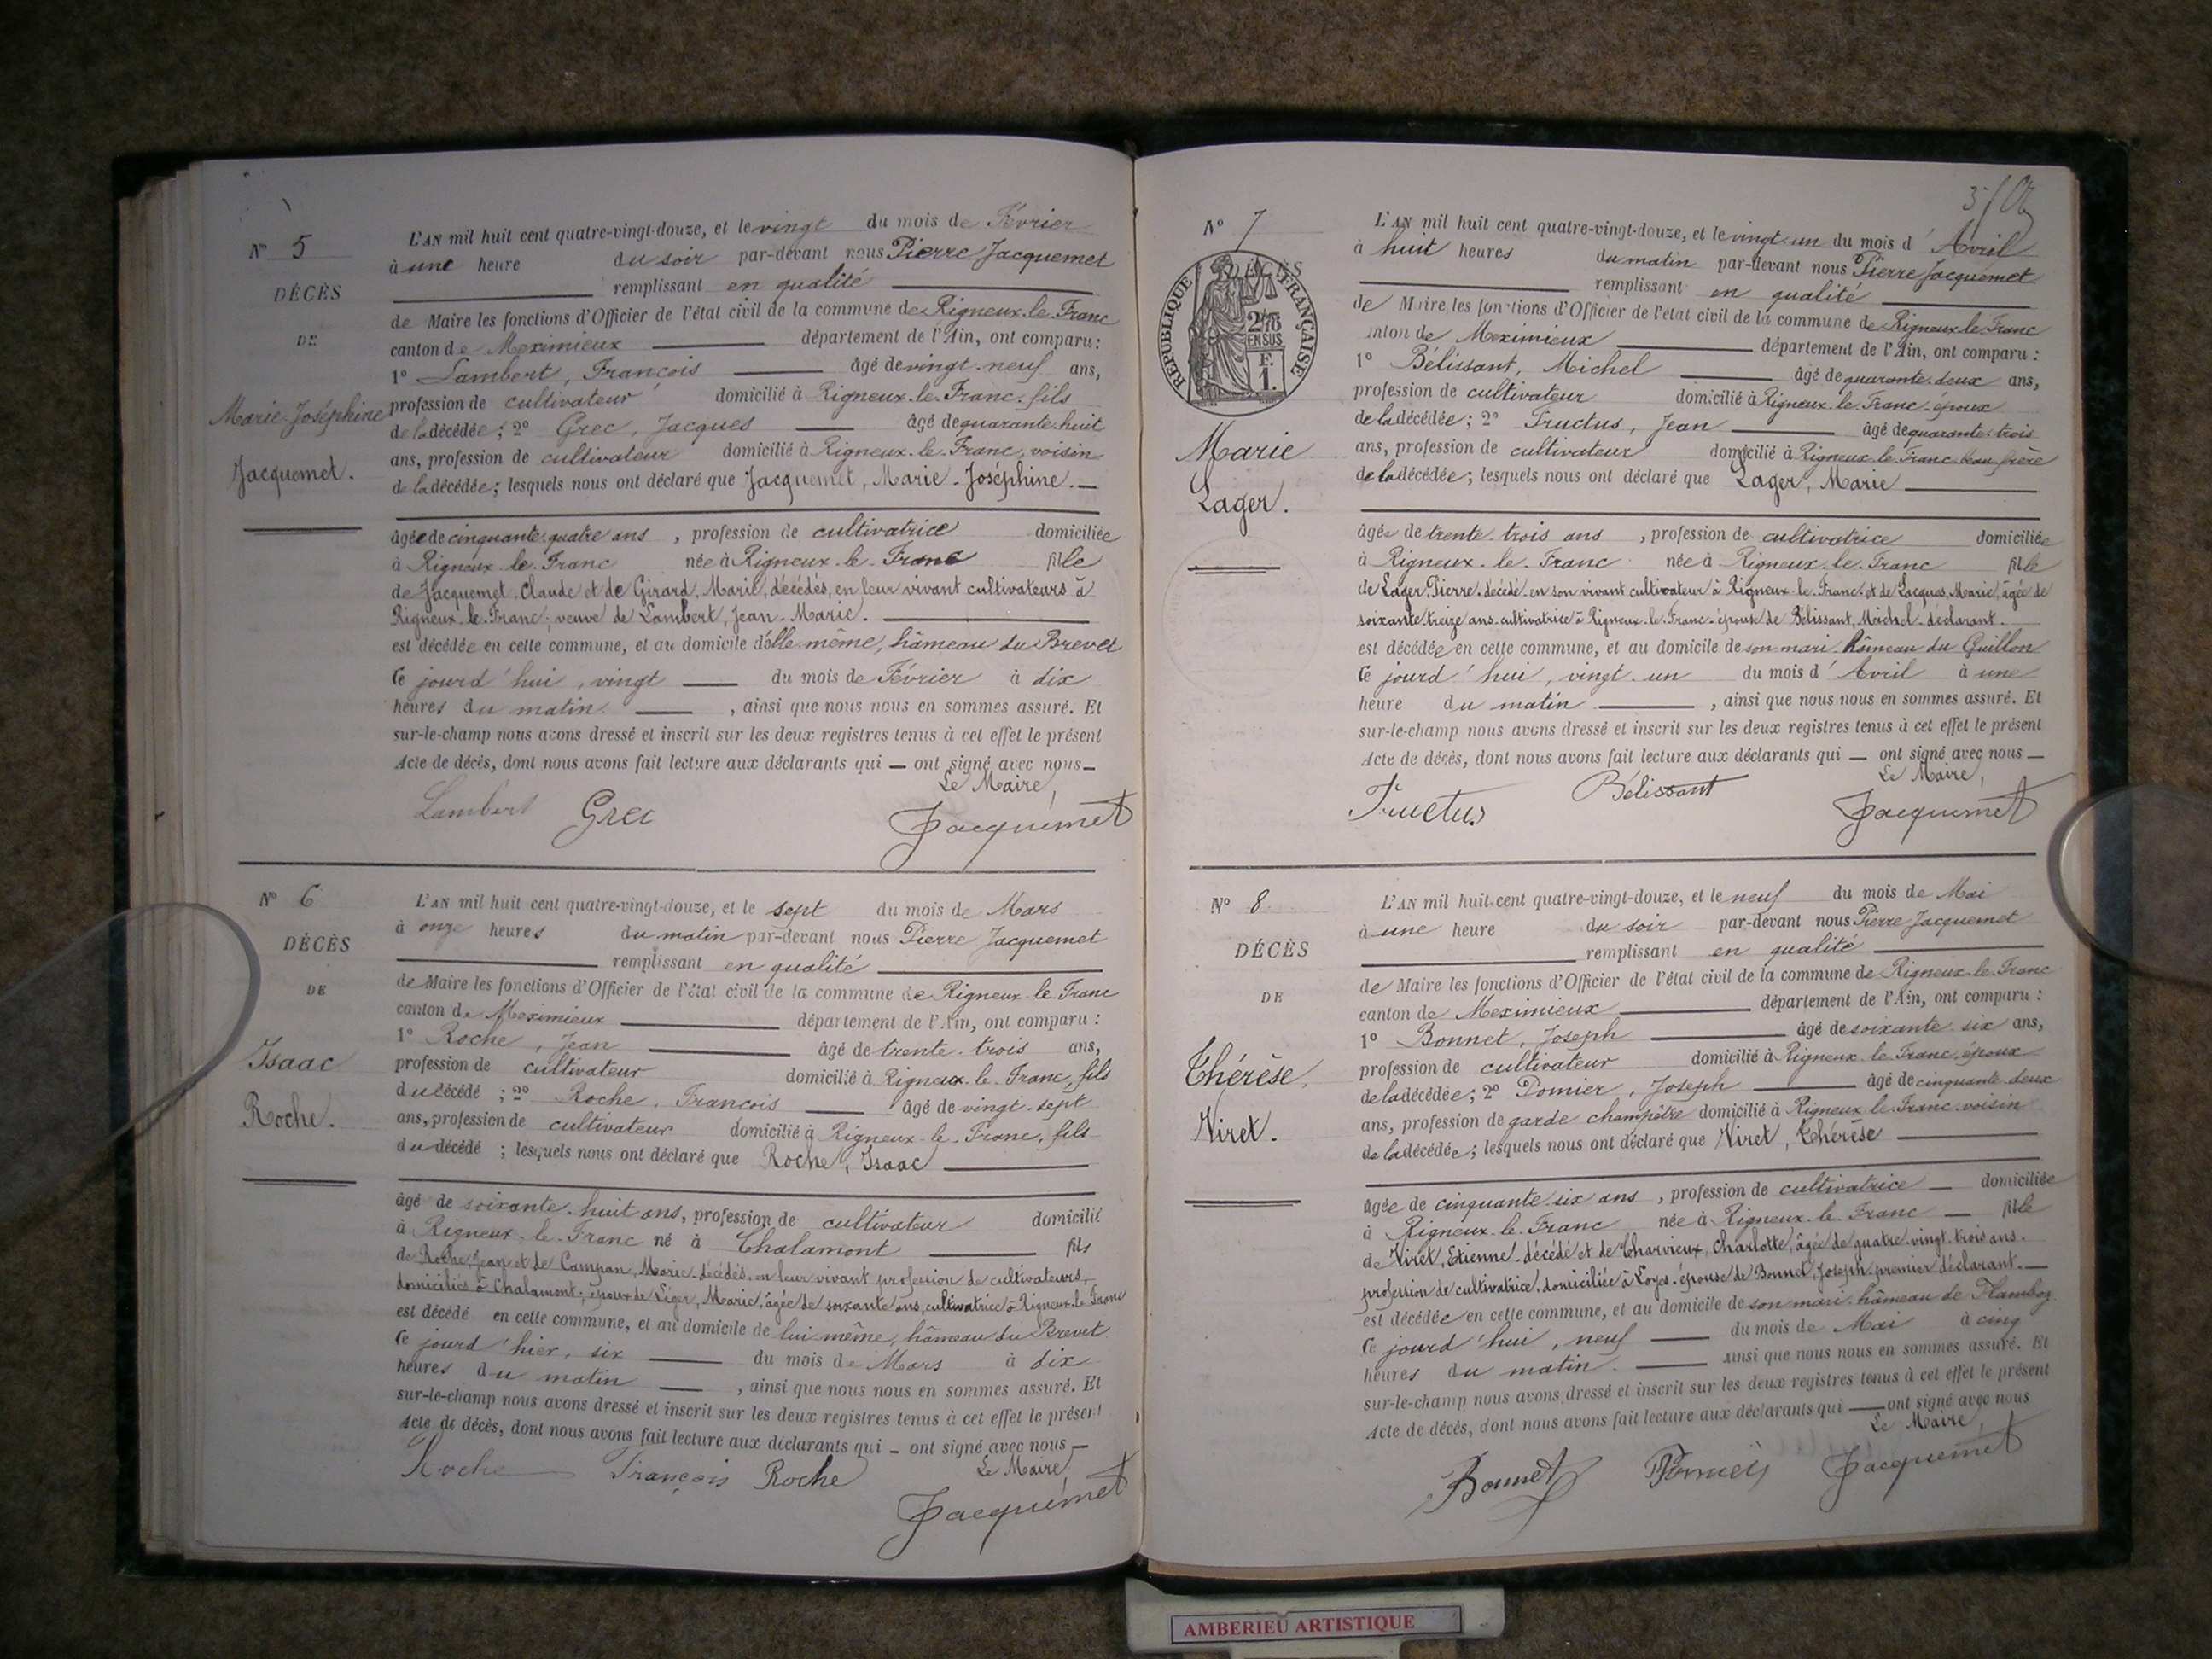 N° 5
DÉCÈS
DE
Marie-Joséphine
Jacquemet.
L'AN mil huit cent quatre-vingt-douze, et le vingt du mois de Février
à une heure du soir par-devant nous Pierre Jacquemet
remplissant en qualité
de Maire les fonctions d'Officier de l'état civil de la commune de Rigneux-le-Franc
canton de Meximieux département de l'Ain, ont comparu :
1° Lambert, François âgé de vingt-neuf ans,
profession de cultivateur domicilié à Rigneux-le-Franc, fils
de la décédée ; 2° Grec, Jacques âgé de quarante-huit
ans, profession de cultivateur domicilié à Rigneux-le-Franc, voisin
de la décédée ; lesquels nous ont déclaré que Jacquemet, Marie-Joséphine.
âgée de cinquante-quatre ans, profession de cultivatrice domiciliée
à Rigneux-le-Franc née à Rigneux-le-Franc fille
de Jacquemet, Claude et de Girard, Marie, décédés, en leur vivant cultivateurs à
Rigneux-le-Franc ; veuve de Lambert, Jean-Marie.
est décédée en cette commune, et au domicile d'elle-même, hâmeau du Brevet
Ce jourd'hui, vingt du mois de Février à dix
heures du matin, ainsi que nous nous en sommes assuré. Et
sur-le-champ nous avons dressé et inscrit sur les deux registres tenus à cet effet le présent
Acte de décès, dont nous avons fait lecture aux déclarants qui ont signé avec nous
Le Maire,
Lambert Grec Jacquemet
N° 6
DÉCÈS
DE
Isaac
Roche.
L'AN mil huit cent quatre-vingt-douze, et le sept du mois de Mars
à onze heures du matin par-devant nous Pierre Jacquemet
remplissant en qualité
de Maire les fonctions d'Officier de l'état civil de la commune de Rigneux-le-Franc
canton de Meximieux département de l'Ain, ont comparu :
1° Roche, Jean âgé de trente-trois ans,
profession de cultivateur domicilié à Rigneux-le-Franc, fils
du décédé ; 2° Roche, François âgé de vingt-sept
ans, profession de cultivateur domicilié à Rigneux-le-Franc, fils
du décédé ; lesquels nous ont déclaré que Roche, Isaac
âgé de soixante-huit ans, profession de cultivateur domicilié
à Rigneux-le-Franc né à Chalamont fils
de Roche, Jean et de Campan, Marie, décédés, en leur vivant profession de cultivateurs,
domiciliés à Chalamont ; époux de Liger, Marie, âgée de soixante ans, cultivatrice à Rigneux-le-Franc
est décédé en cette commune, et au domicile de lui-même, hâmeau du Brevet
Ce jourd'hier, six du mois de Mars à dix
heures du matin, ainsi que nous nous en sommes assuré. Et
sur-le-champ nous avons dressé et inscrit sur les deux registres tenus à cet effet le présent
Acte de décès, dont nous avons fait lecture aux déclarants qui ont signé avec nous
Le Maire,
Roche François Roche Jacquemet
N° 7
DÉCÈS
RÉPUBLIQUE FRANÇAISE
2/10
EN SUS
F.
1.
Marie
Lager.
L'AN mil huit cent quatre-vingt-douze, et le vingt-un du mois d'Avril
à huit heures du matin par-devant nous Pierre Jacquemet
remplissant en qualité
de Maire les fonctions d'Officier de l'état civil de la commune de Rigneux-le-Franc
canton de Meximieux département de l'Ain, ont comparu :
1° Bélissant, Michel âgé de quarante-deux ans,
profession de cultivateur domicilié à Rigneux-le-Franc, époux
de la décédée ; 2° Fructus, Jean âgé de quarante-trois
ans, profession de cultivateur domicilié à Rigneux-le-Franc, beau frère
de la décédée ; lesquels nous ont déclaré que Lager, Marie
âgée de trente-trois ans, profession de cultivatrice domiciliée
à Rigneux-le-Franc née à Rigneux-le-Franc fille
de Lager, Pierre, décédé, en son vivant cultivateur à Rigneux-le-Franc, et de Jacques, Marie, âgée de
soixante-treize ans, cultivatrice à Rigneux-le-Franc, épouse de Bélissant, Michel, déclarant.
est décédée en cette commune, et au domicile de son mari, hâmeau du Guillon
Ce jourd'hui, vingt-un du mois d'Avril à une
heure du matin, ainsi que nous nous en sommes assuré. Et
sur-le-champ nous avons dressé et inscrit sur les deux registres tenus à cet effet le présent
Acte de décès, dont nous avons fait lecture aux déclarants qui ont signé avec nous
Le Maire,
Fructus Bélissant Jacquemet
N° 8
DÉCÈS
DE
Thérèse,
Viret.
L'AN mil huit cent quatre-vingt-douze, et le neuf du mois de Mai
à une heure du soir par-devant nous Pierre Jacquemet
remplissant en qualité
de Maire les fonctions d'Officier de l'état civil de la commune de Rigneux-le-Franc
canton de Meximieux département de l'Ain, ont comparu :
1° Bonnet, Joseph âgé de soixante-six ans,
profession de cultivateur domicilié à Rigneux-le-Franc, époux
de la décédée ; 2° Pomier, Joseph âgé de cinquante-deux
ans, profession de garde champêtre domicilié à Rigneux-le-Franc, voisin
de la décédée ; lesquels nous ont déclaré que Viret, Thérèse
âgée de cinquante-six ans, profession de cultivatrice domiciliée
à Rigneux-le-Franc née à Rigneux-le-Franc fille
de Viret, Etienne, décédé et de Charvieux, Charlotte, âgée de quatre-vingt-trois ans,
profession de cultivatrice, domiciliée à Loyes, épouse de Bonnet, Joseph, premier déclarant.
est décédée en cette commune, et au domicile de son mari, hâmeau de Flamboz
Ce jourd'hui, neuf du mois de Mai à cinq
heures du matin. ainsi que nous nous en sommes assuré. Et
sur-le-champ nous avons dressé et inscrit sur les deux registres tenus à cet effet le présent
Acte de décès, dont nous avons fait lecture aux déclarants qui ont signé avec nous
Le Maire,
Bonnet Pomier Jacquemet
AMBERIEU ARTISTIQUE